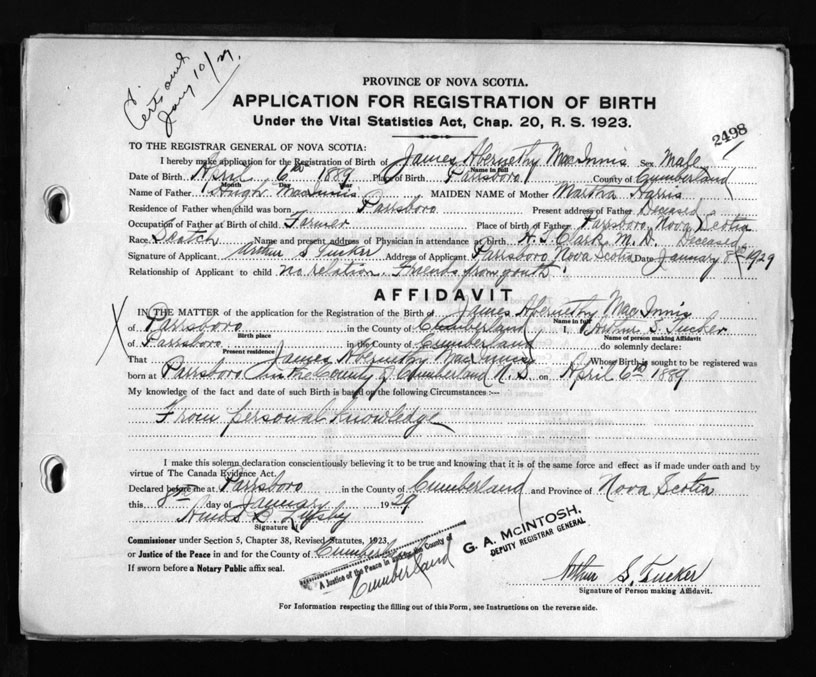 Certs and
Jany 10/29.
PROVINCE OF NOVA SCOTIA.
APPLICATION FOR REGISTRATION OF BIRTH
Under the Vital Statistics Act, Chap. 20, R. S. 1923.
2498
TO THE REGISTRAR GENERAL OF NOVA SCOTIA:
I hereby make application for the Registration of Birth of James Abernethy MacInnis Sex Male
Name in full
Date of Birth April 6th 1889 Place of Birth Parrsboro County of Cumberland
Month Day Year
Name of Father Hugh MacInnis MAIDEN NAME of Mother Martha Harris
Residence of Father when child was born Parrsboro Present address of Father Deceased
Occupation of Father at Birth of child Farmer Place of birth of Father Parrsboro, Nova Scotia
Race Scotch Name and present address of Physician in attendance at birth Clark, M. D. Deceased
Signature of Applicant Arthur S Tucker Address of Applicant Parrsboro Nova Scotia Date January 8th 1929
Relationship of Applicant to child no relation. Friends from youth.
AFFIDAVIT
IN THE MATTER of the application for the Registration of the Birth of James Abernethy MacInnis
Name in full
of Parrsboro in the County of Cumberland I, Arthur S. Tucker
Birth place Name of person making Affidavit
of Parrsboro in the County of Cumberland do solemnly declare:
Present residence
That James Abernethy MacInnis Whose Birth is sought to be registered was
born at Parrsboro in the County of Cumberland N. S. on April 6th 1889
My knowledge of the fact and date of such Birth is based on the following Circumstances :--
From personal knowledge
I make this solemn declaration conscientiously believing it to be true and knowing that it is of the same force and effect as if made under oath and by
virtue of The Canada Evidence Act.
Declared before me at Parrsboro in the County of Cumberland and Province of Nova Scotia
this 8th day of January 1929
Signature of
Commissioner under Section 5, Chapter 38, Revised Statutes, 1923,
or Justice of the Peace in and for the County of Cumberland
If sworn before a Notary Public affix seal.
A Justice of the Peace in and for the County of
Cumberland
G. A. McINTOSH,
DEPUTY REGISTRAR GENERAL
Arthur S. Tucker
Signature of Person making Affidavit.
For Information respecting the filling out of this Form, see Instructions on the reverse side.